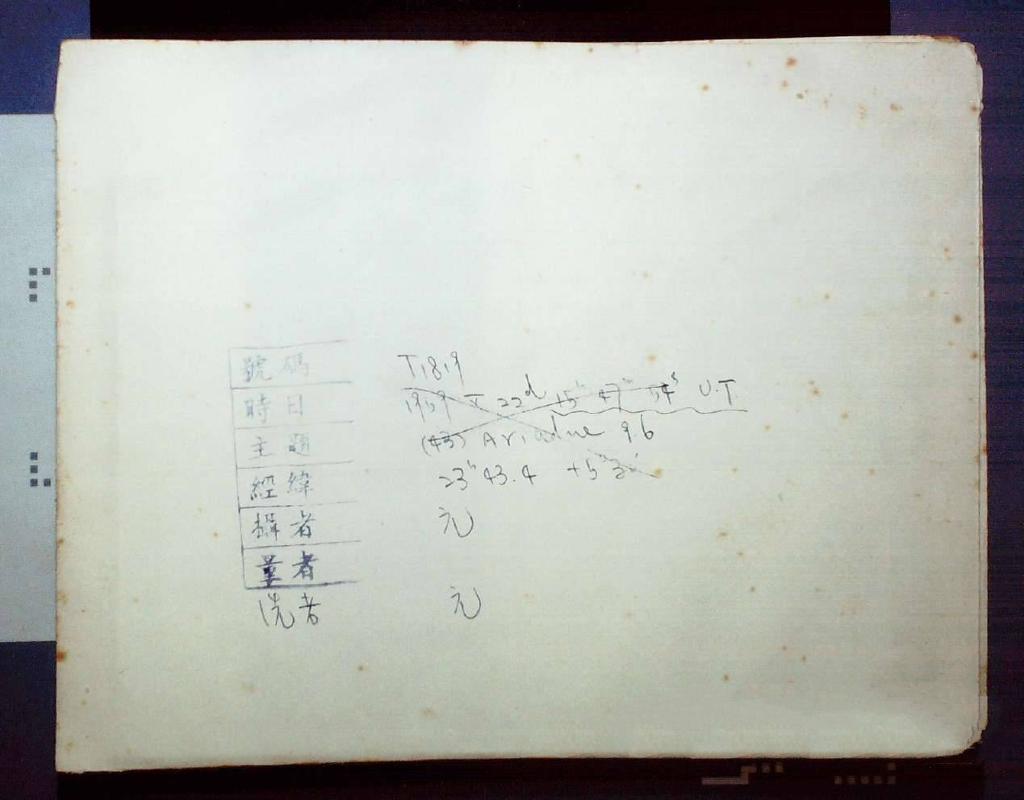 號碼 T1819
時日 22d 15h 47m 54s U.T
主題 (43) Ariadne 9.6
經緯 23h 43.4 +5°
攝者 元
量者
洗者 元